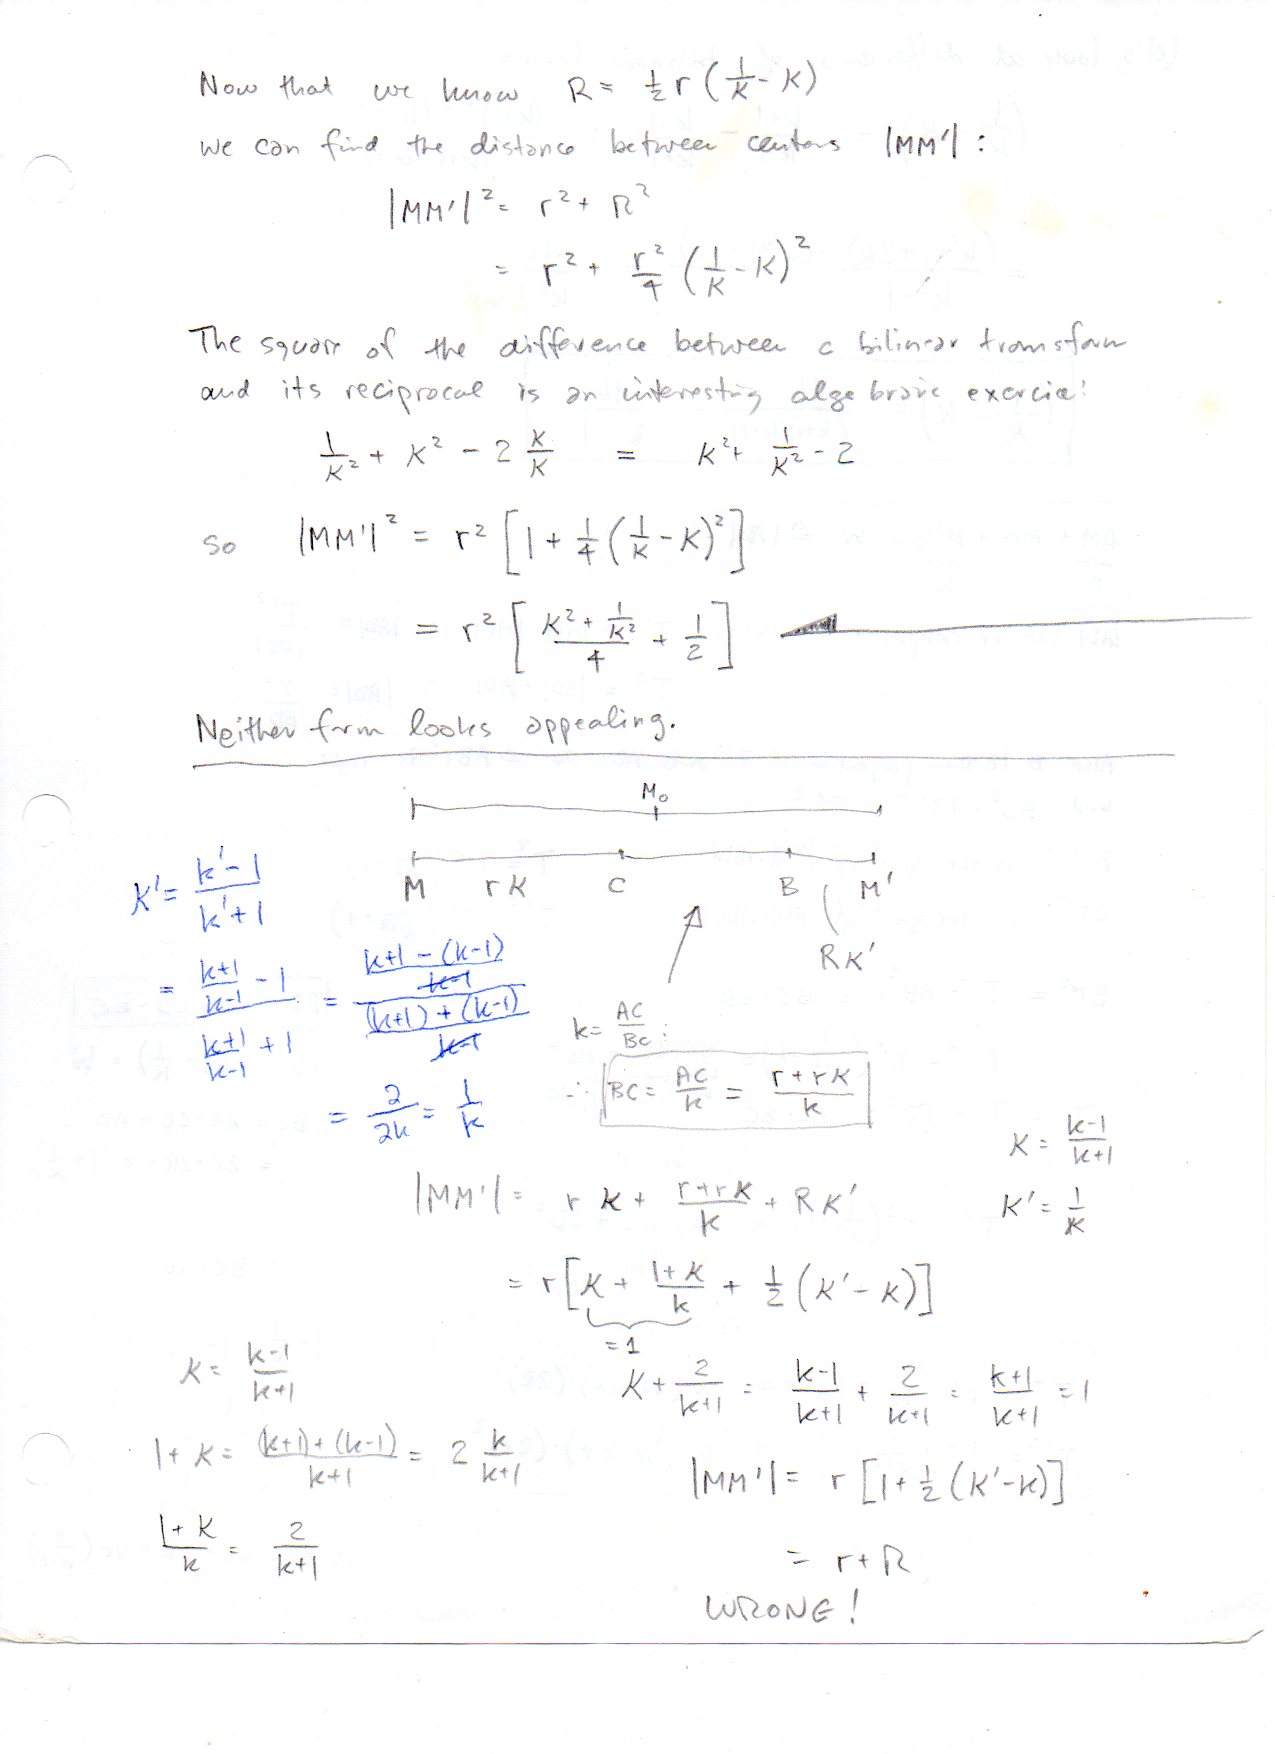 Now that we know R = ½ r (1/K - K)
we can find the distance between centers |MM'| :
|MM'|² = r² + R²
= r² + r²/4 (1/K - K)²
The square of the difference between a bilinear transform
and its reciprocal is an interesting algebraic exercise:
1/K² + K² - 2 K/K = K² + 1/K² - 2
so |MM'|² = r² [1 + ¼ (1/K - K)²]
= r² [(K² + 1/K²)/4 + 1/2]
Neither form looks appealing.
M₀
M rK C B M'
RK'
K' = (k'-1)/(k'+1)
= ((k+1)/(k-1) - 1)/((k+1)/(k-1) + 1) = ((k+1 - (k-1))/(k-1))/(((k+1) + (k-1))/(k-1))
= 2/2k = 1/k
k = AC/BC :
∴ BC = AC/k = (r + rK)/k
K = (k-1)/(k+1)
K' = 1/K
|MM'| = rK + (r + rK)/k + RK'
= r [K + (1+K)/k + ½ (K' - K)]
= 1
K + 2/(k+1) = (k-1)/(k+1) + 2/(k+1) = (k+1)/(k+1) = 1
K = (k-1)/(k+1)
1 + K = ((k+1) + (k-1))/(k+1) = 2 k/(k+1)
(1+K)/k = 2/(k+1)
|MM'| = r [1 + ½ (K' - K)]
= r + R
WRONG!